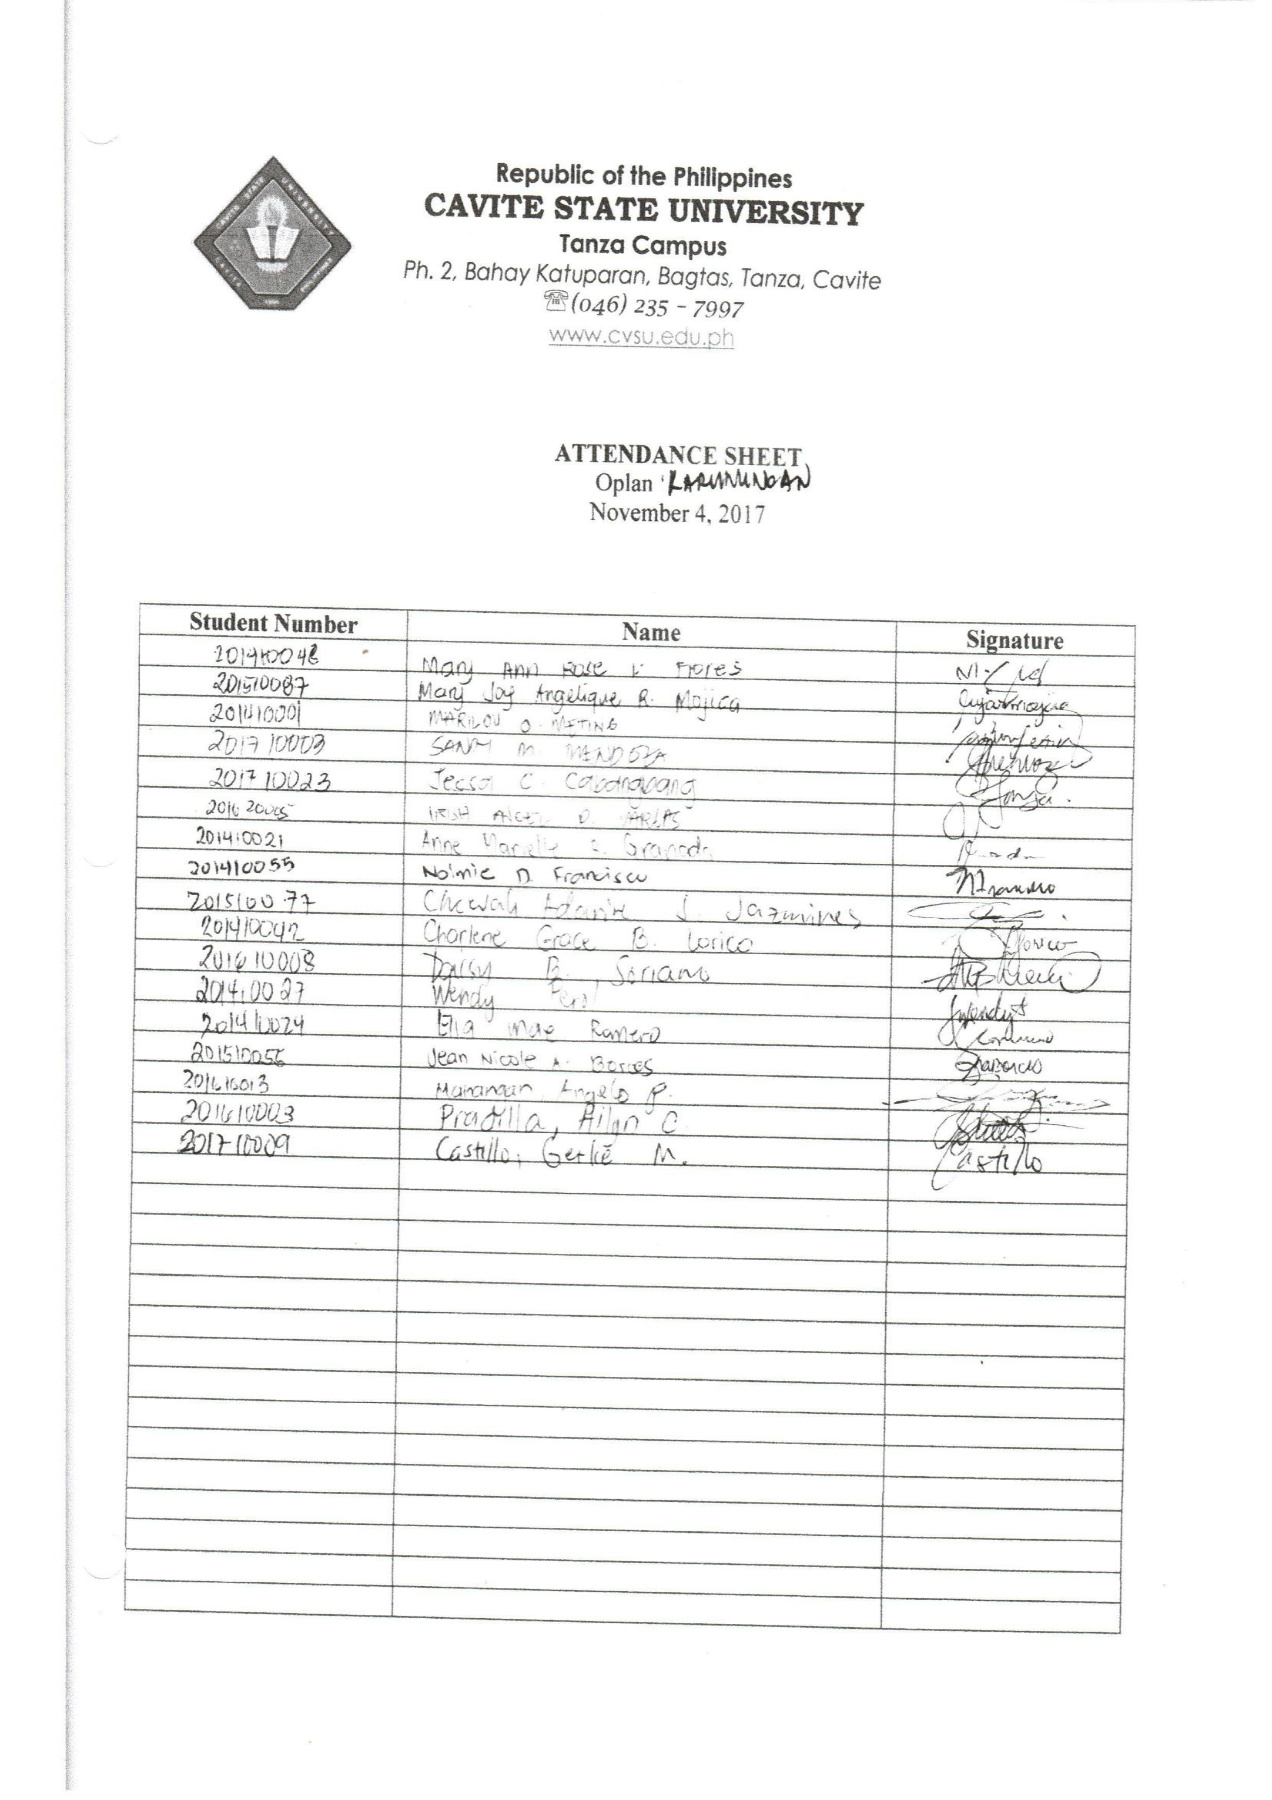 Republic of the Philippines
CAVITE STATE UNIVERSITY
Tanza Campus
Ph. 2, Bahay Katuparan, Bagtas, Tanza, Cavite
☏(046) 235 - 7997
www.cvsu.edu.ph
CAVITE STATE UNIVERSITY
CAVITE
ATTENDANCE SHEET
Oplan KARUNUNGAN
November 4, 2017
Student Number Name Signature
201410048 Mary Ann Rose V. Flores
201510087 Mary Joy Angelique R. Mojica
201410001 MARILOU O. METING
201710003 SANDY M. MENDOZA
201710023 Jessa C. Cabangbang
IRISH O.
201410021 Anne Marielle Granada
201410055 Noimie D. Francisco
201510077 J. Jazmines
201410042 Charlene Grace B. Lorico
201610008 Daisy B. Soriano
201410027 Wendy
201410024 Ella Mae Romero
201510056 Jean Nicole A. Borces
201610013 Angelo P.
201610003 Pradilla, Ailyn C.
201710009 Castillo, Gerlie M. Castillo